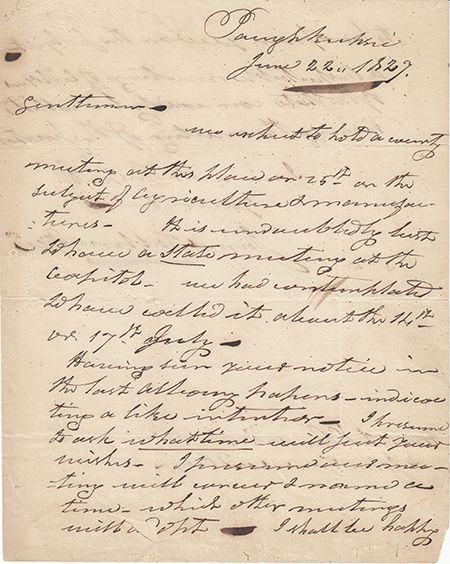 Poughkeepsie
June 22d 1827.
Gentlemen
we expect to hold a county
meeting at this place on 25th on the
subject of agriculture & manufac-
tures - It is undoubtedly best
to have a state meeting at the
Capitol - we had contemplated
to have called it about the 14th
or 17th July -
Having seen your notice in
the last Albany papers - indica
ting a like intention - I presume
to ask what time will suit your
wishes - I presume our mee-
ting will concur & name a
time - which other meetings
will adopt - I shall be happy